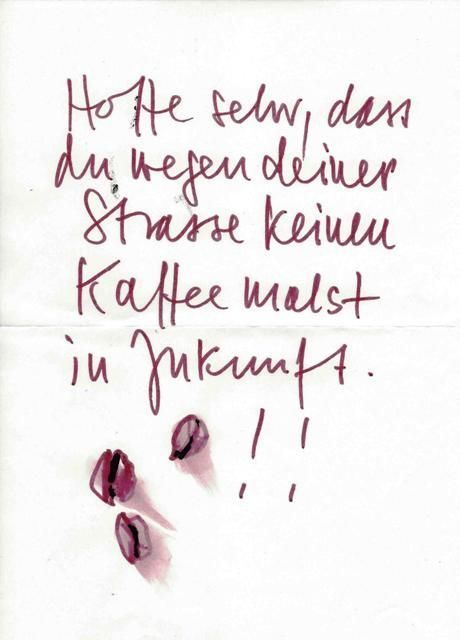 Hoffe sehr, dass
du wegen deiner
Strasse keinen
Kaffee malst
in Zukunft.
!!